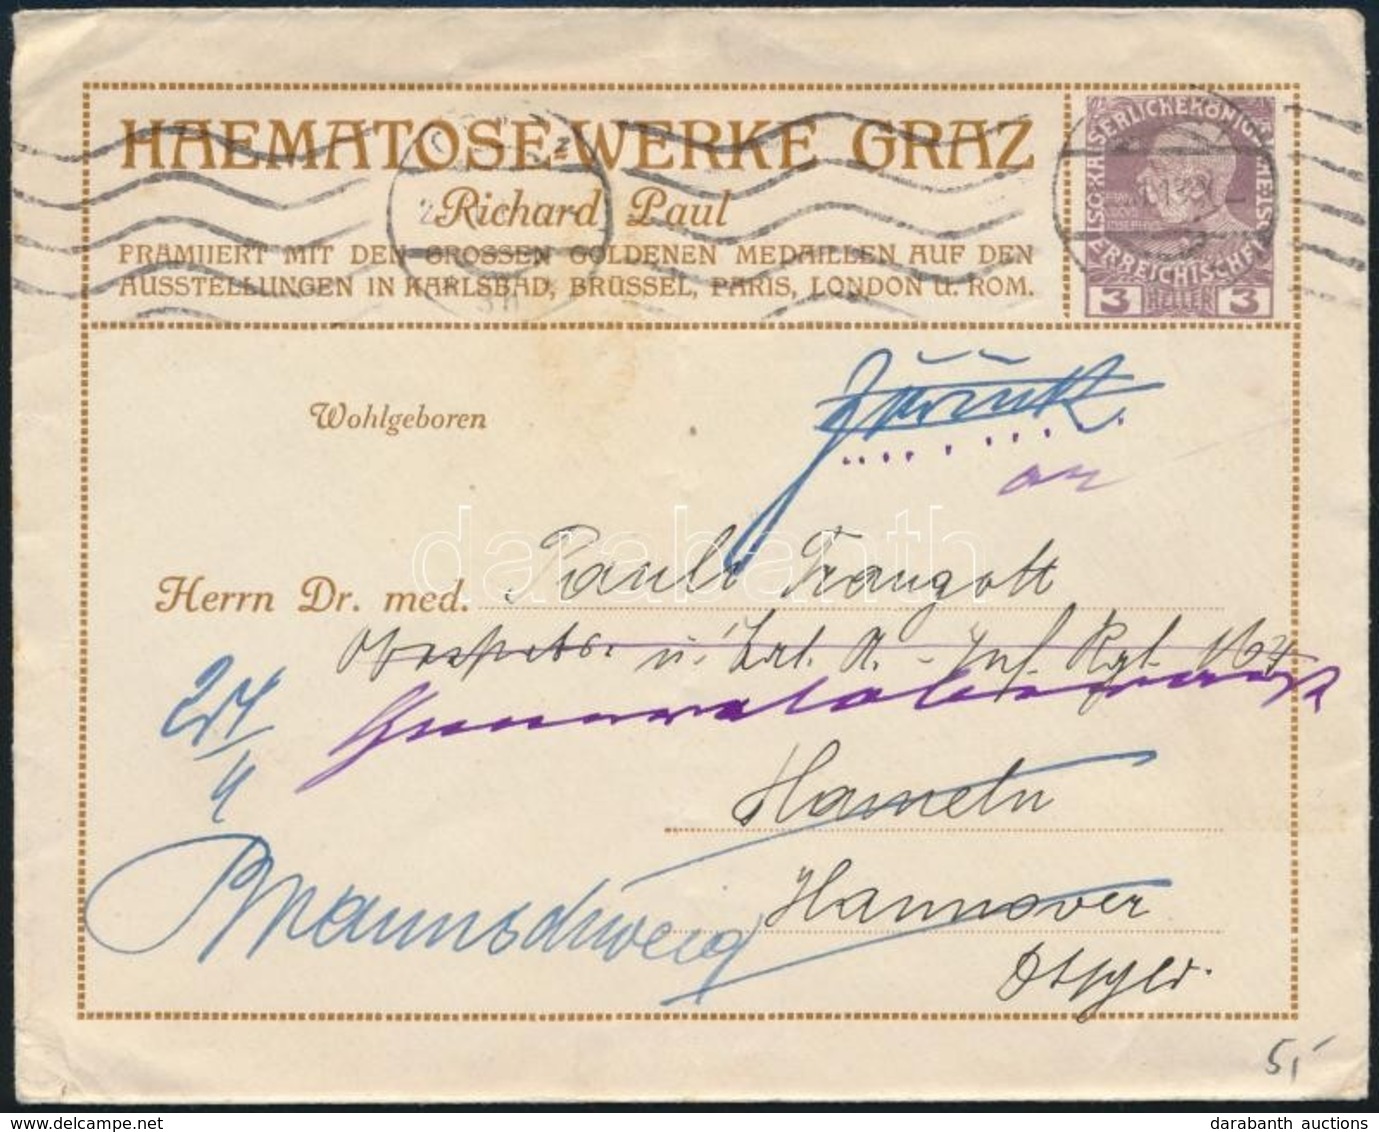 HAEMATOSE-WERKE GRAZ
Richard Paul
PRÄMIIERT MIT DEN GROSSEN GOLDENEN MEDAILLEN AUF DEN
AUSSTELLUNGEN IN KARLSBAD, BRÜSSEL, PARIS, LONDON U. ROM.
KAISERLICHE KÖNIGL
ÖSTERREICHISCHE
3 HELLER 3
Zurück
an
Wohlgeboren
Herrn Dr. med. Pauli Traugott
u. Inf. Rgt. 164
Hameln
Hannover
Braunschweig
Dtschld.
darabanth
5,-
darabanth auctions